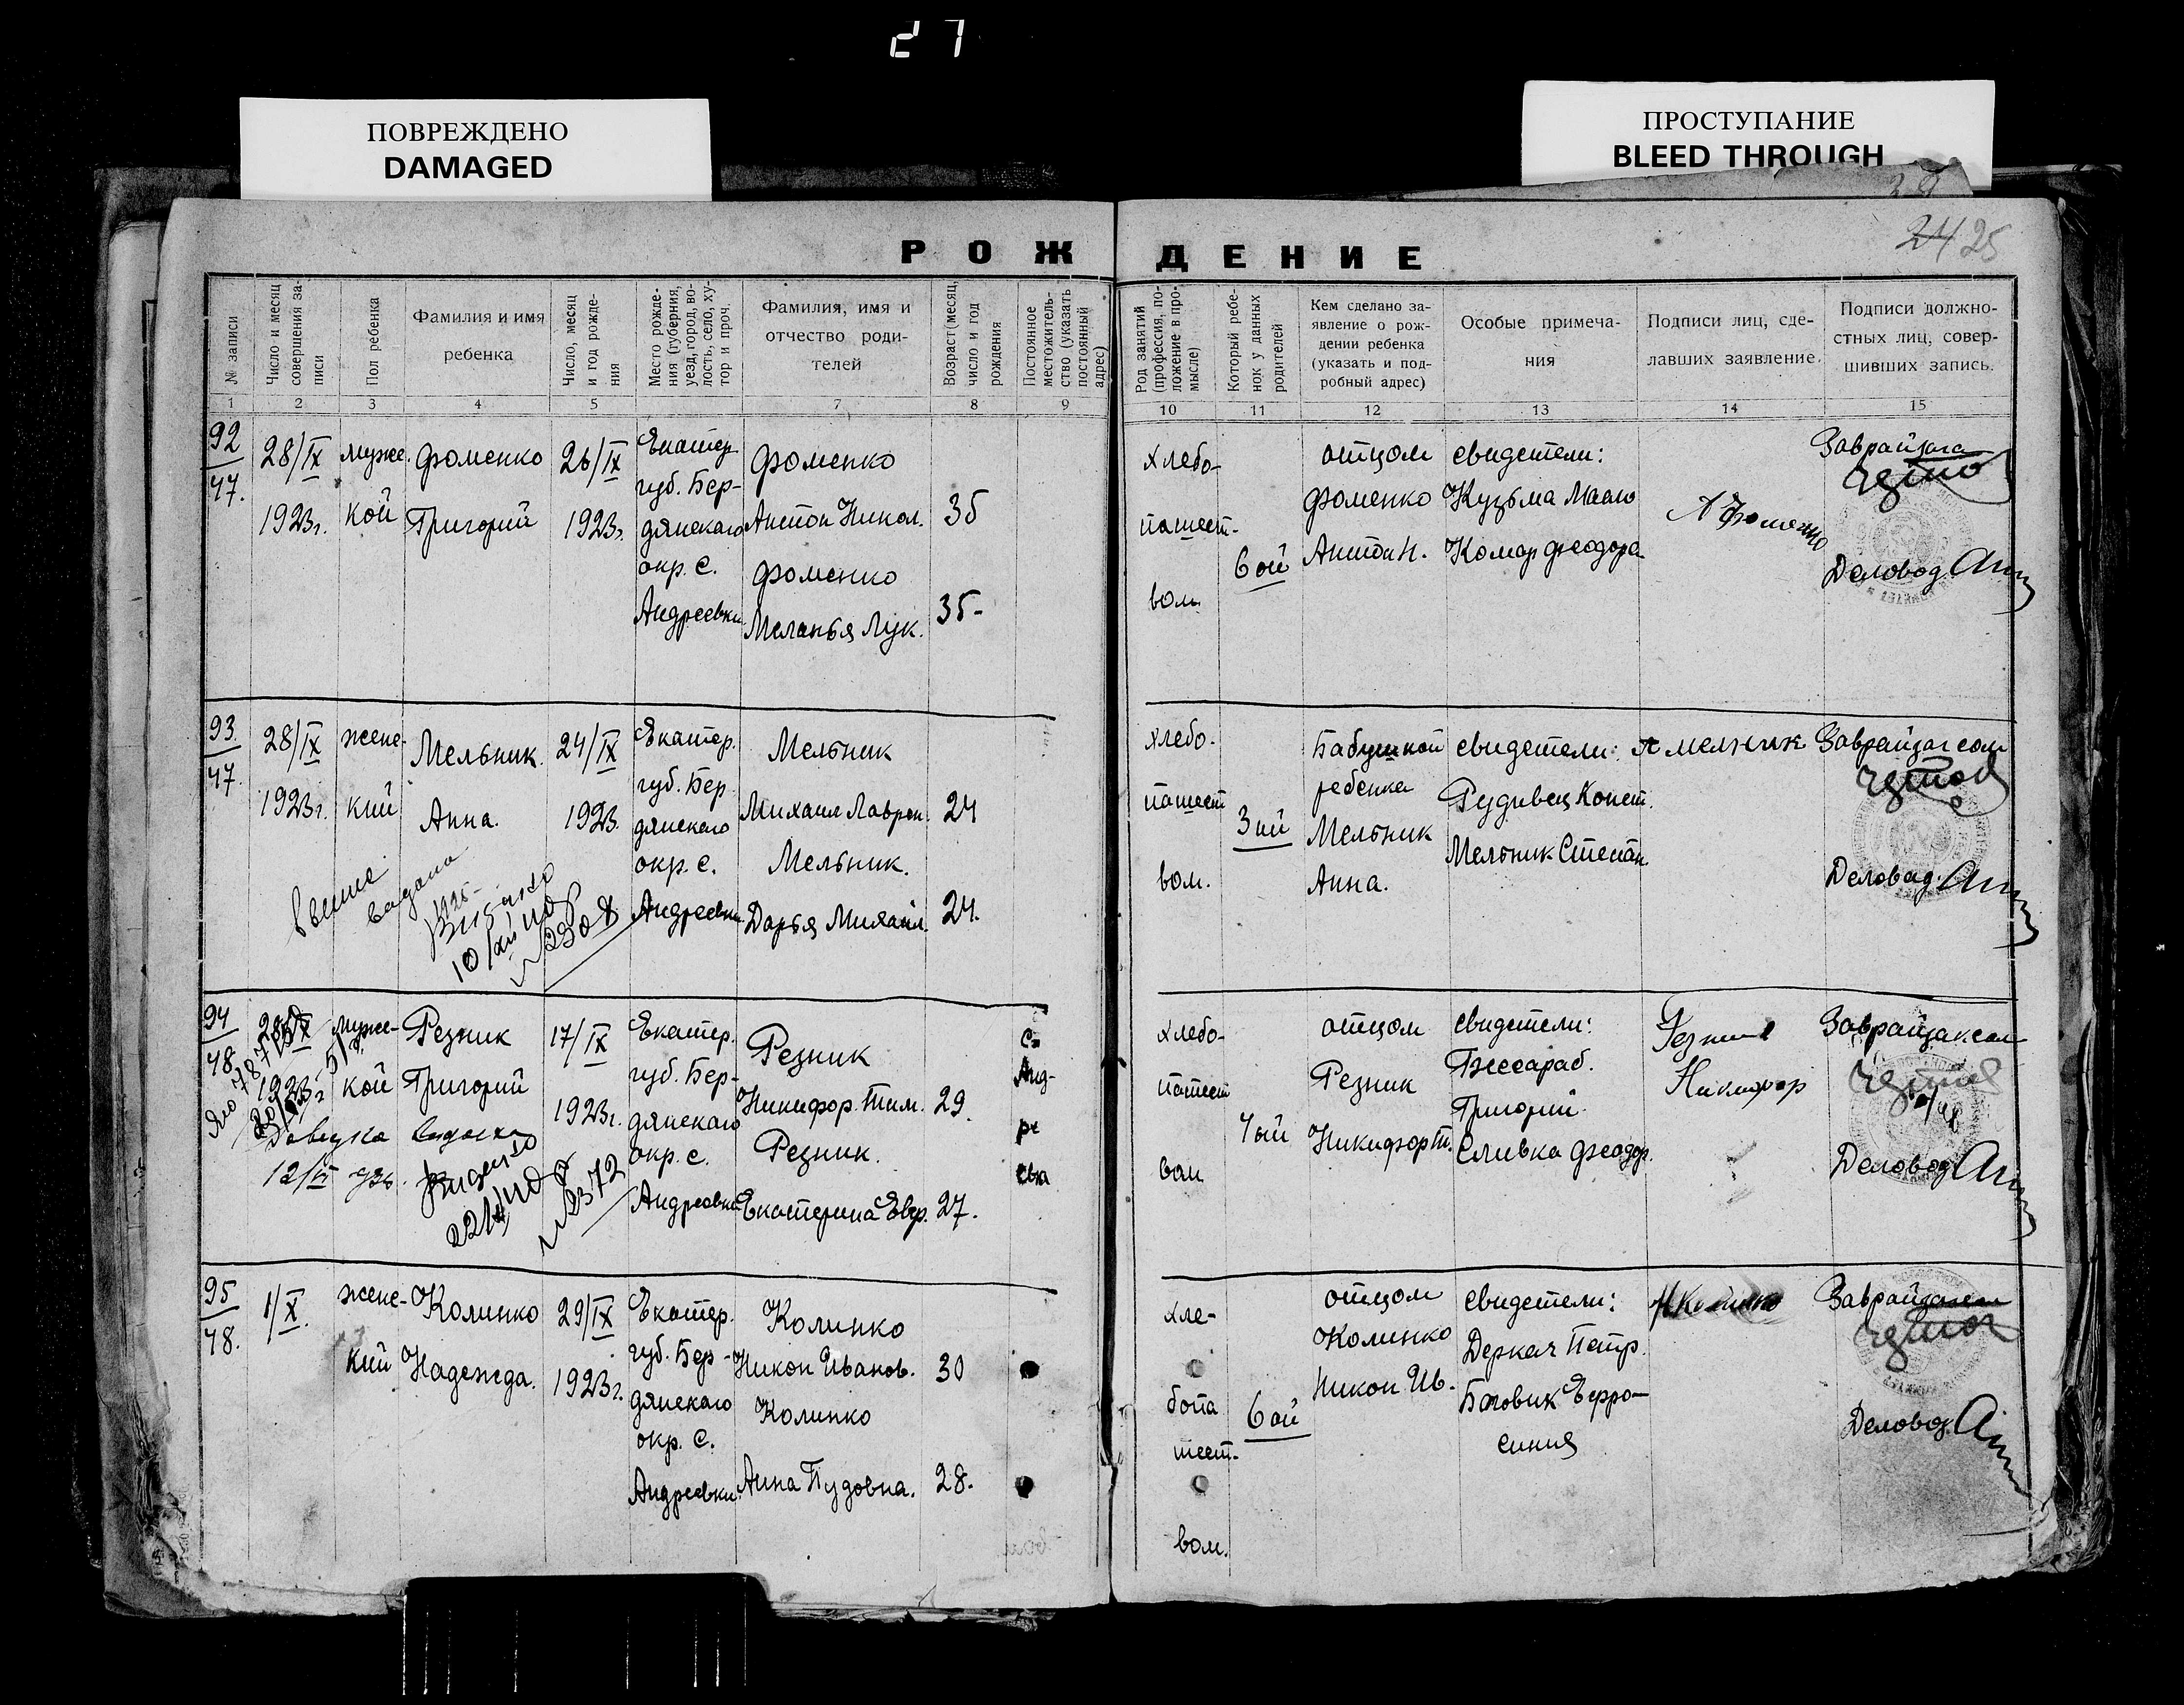 27
ПОВРЕЖДЕНО
DAMAGED
ПРОСТУПАНИЕ
BLEED THROUGH
24 25
РОЖДЕНИЕ
№ записи
Число и месяц совершения за-
писи
Пол ребенка
Фамилия и имя
ребенка
Число, месяц
и год рожде-
ния
Место рожде-
ния (губерния,
уезд, город, во-
лость, село, ху-
тор и проч.
Фамилия, имя и
отчество роди-
телей
Возраст (месяц,
число и год
рождения
Постоянное
местожитель-
ство (указать
постоянный
адрес)
Род занятий
(профессия, по-
ложение в про-
мысле)
Который ребе-
нок у данных
родителей
Кем сделано за-
явление о рож-
дении ребенка
(указать и под-
робный адрес)
Особые примеча-
ния
Подписи лиц, сде-
лавших заявление.
Подписи должно-
стных лиц, совер-
шивших запись.
1 2 3 4 5 7 8 9 10 11 12 13 14 15
92
47.
28/IX
1923г.
мужс.
кой
Фоменко
Григорий
26/IX
1923г.
Екатер
губ. Бер-
дянскаго
окр. с.
Андреевки
Фоменко
Антон Никол.
Фоменко
Меланья Лук.
35
35-
хлебо-
пашест-
вом
6ой
отцом
Фоменко
Антон Н.
свидетели:
Кузьма Мааю
Комар Феодора
А Фоменко
Заврайзага
Деловод
93.
47.
28/IX
1923г.
женс-
кий
Мельник.
Анна.
24/IX
1923.
Екатер.
губ. Бер
дянскаго
окр. с.
Андреевки
Мельник
Михаил Лаврен.
Мельник.
Дарья Михаил.
24
24.
хлебо-
пашест
вом.
3ий
Бабушкой
ребенка
Мельник
Анна.
свидетели:
Рудивец Конст.
Мельник Степан
А мелник
Заврайзагсом
Деловод.
10/XII
№2308
94
48.
28/IX
1923г
мужс-
кой
Резник
Григорий
17/IX
1923г.
Екатер.
губ. Бер-
дянскаго
окр. с.
Андреевки
Резник
Никифор. Тим.
Резник.
Екатерина Евгр.
29.
27.
с.
Анд-
ре
евка
хлебо-
пашест
вом
4ый
отцом
Резник
Никифор Т.
свидетели:
Бессараб.
Григорий.
Сливка Феодор.
Резник
Никифор
Заврайзаксом
Деловод
№2372
95
48.
1/X.
женс-
кий
Колинко
Надежда.
29/IX
1923г.
Екатер.
губ. Бер-
дянскаго
окр. с.
Андреевки
Колинко
Никон Иванов.
Колинко
Анна Пудовна.
30
28.
хле-
бопа
шест-
вом.
6ой
отцом
Колинко
Никон Ив.
свидетели:
Деркач Петр.
Боговик Ефро-
синия
Н Колинко
Заврайзагсом
Деловод.